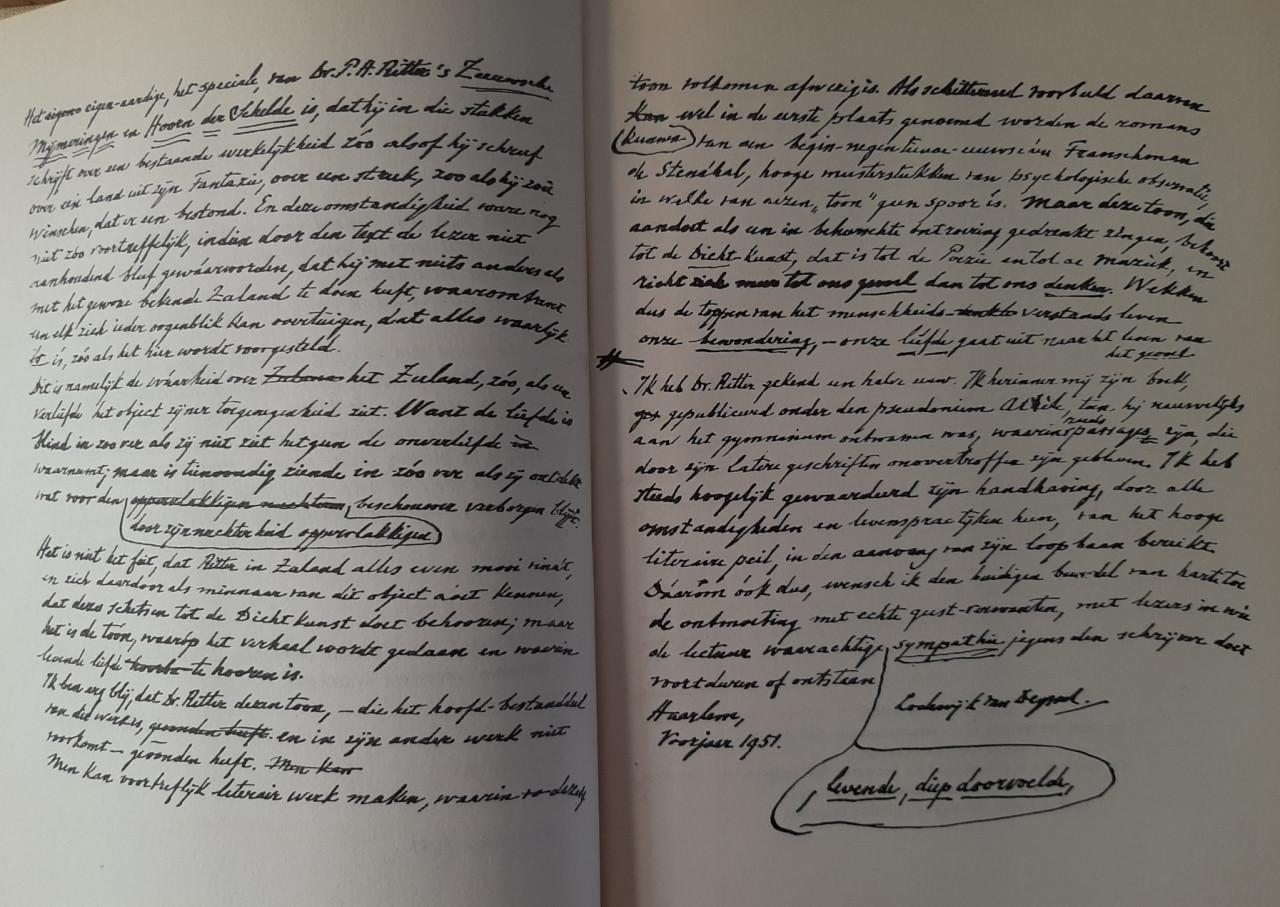 Het eigen-aardige, het speciale, van Dr. P. H. Ritter's Zeeuwsche
Mijmeringen en Hoorn der Schelde is, dat hij in die stukken
schrijft over een bestaande werkelijkheid zóo alsof hij schreef
over een land uit zijn Fantazie, over een streek, zoo als hij zoû
wenschen, dat er een bestond. En deze omstandigheid ware nog
niet zóo voortreffelijk, indien door den text de lezer niet
aanhoudend bleef gewáarworden, dat hij met niets anders als
met het gewone bekende Zeeland te doen heeft, waaromtrent
een elk zich ieder oogenblik kan overtuigen, dat alles waarlijk
is, zóo als het hier wordt voorgesteld.
Dit is namelijk de wáarheid over Zeland het Zeeland, zóo, als een
verliefde het object zijner toegenegenheid ziet. Want de liefde is
blind in zoo ver als zij niet ziet hetgeen de onverliefde
waarneemt; maar is tienvoudig ziende in zóo ver als zij ontdekt
wat voor den oppervlakkigen nuchteren, beschouwer verborgen blijft.
door zijn nuchterheid oppervlakkigen
Het is niet het feit, dat Ritter in Zeeland alles even mooi vindt,
en zich daardóor als minnaar van dit object doet kennen,
dat deze schetsen tot de Dichtkunst doet behooren; maar
het is de tóon, waaróp het verhaal wordt gedaan en waarin
levende liefde te hooren is.
Ik ben erg blij, dat Dr. Ritter dezen toon, – die het hoofd-bestanddeel
van die werkjes, gevonden heeft. en in zijn ander werk niet
voorkomt – gevonden heeft. Men kan
Men kan voortreflijk literair werk maken, waarin
toon volkomen afwezig is. Als schitterend voorbeeld daarvan
kan wel in de eerste plaats genoemd worden de romans
kunnen van den begin-negentiende-eeuwschen Franschman
de Stendhal, hooge meesterstukken van psychologische observatie,
in welke van dezen „toon" geen spoor is. Maar deze toon, die
aandoet als een in bekoorde ontroering gedrenkt zingen, behoort
tot de Dicht-kunst, dat is tot de Poëzie en tot de Muziek, en
richt zich meer tot ons gevoel dan tot ons denken. Wekken
dus de toppen van het menschheids- verstands leven
onze bewondering, – onze liefde gaat uit naar het leven van
het gevoel
Ik heb Dr. Ritter gekend een halve eeuw. Ik herinner mij zijn boek,
gepubliceerd onder den pseudoniem toen hij nauwelijks
aan het gymnasium ontwassen was, waarin reeds passages zijn, die
door zijn latere geschriften onovertroffen zijn gebleven. Ik heb
steeds hoogelijk gewaardeerd zijn handhaving, door alle
omstandigheden en levenspractijken heen, van het hooge
literaire peil, in den aanvang van zijn loopbaan bereikt.
Dáarom óok dus, wensch ik den huidigen bundel van harte toe
de ontmoeting met echte geest-verwanten, met lezers in wie
de lectuur waarachtige sympathie jegens den schrijver doet
voortduren of ontstaan
Lodewijk van Deyssel.
Haarlem,
Voorjaar 1951.
, levende, diep doorvoelde,